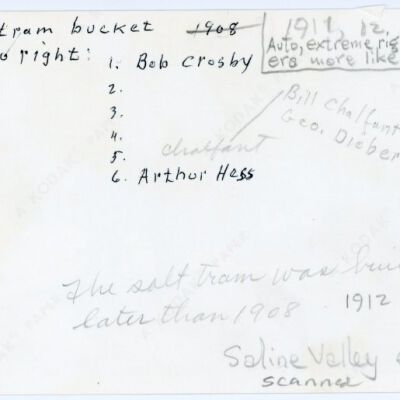 tram bucket 1908
o right:
1911, 12,
Auto, extreme rig
ers more like
1. Bob Crosby
2.
3.
4.
5. Chalfant
6. Arthur Hess
Bill Chalfant
Geo. Dieber
The salt tram was bui
later than 1908 1912
Saline Valley
scanned